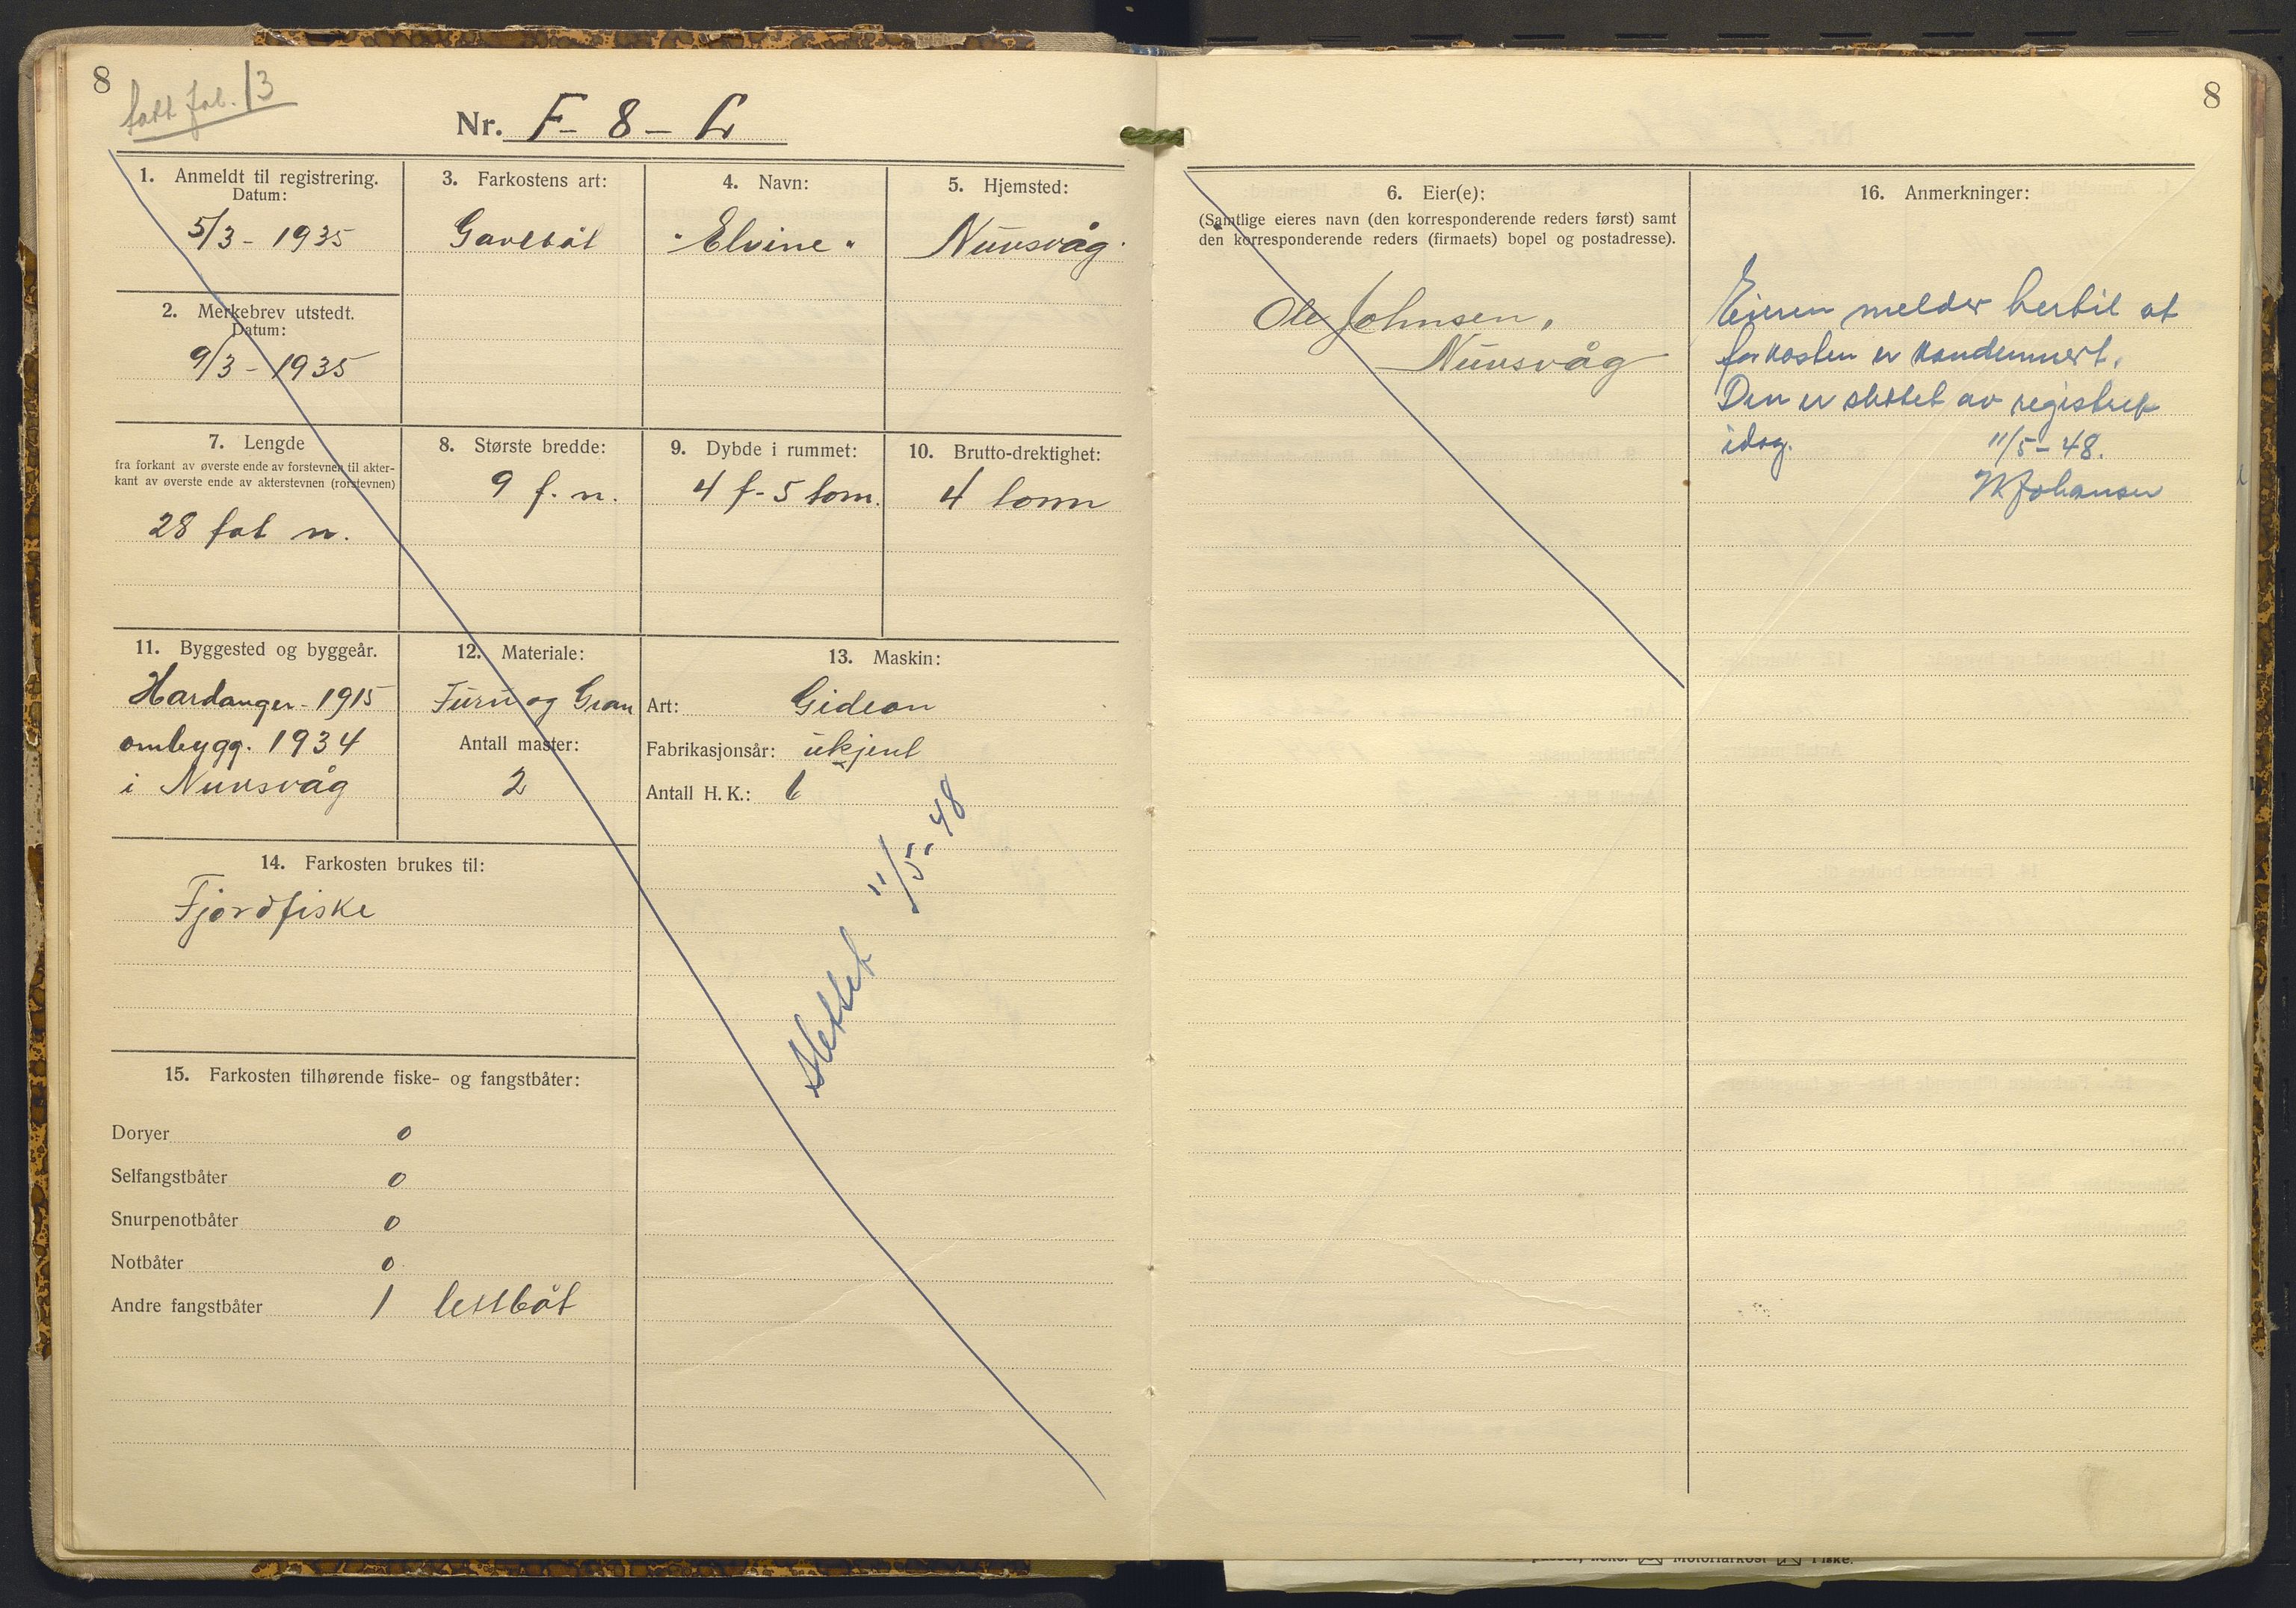 8
fol. 13
Nr. F - 8 - L
1. Anmeldt til registrering.
Datum:
5/3 - 1935
2. Merkebrev utstedt.
Datum:
9/3 - 1935
3. Farkostens art:
Gavlbåt
4. Navn:
"Elvine"
5. Hjemsted:
Nuvsvåg.
7. Lengde
fra forkant av øverste ende av forstevnen til akter-
kant av øverste ende av akterstevnen (rorstevnen)
28 fot n.
8. Største bredde:
9 f. n.
9. Dybde i rummet:
4 f - 5 tom.
10. Brutto-drektighet:
4 tonn
11. Byggested og byggeår.
Hardanger - 1915
ombygg. 1934
i Nuvsvåg
12. Materiale:
Furu og Gran
Antall master:
2
13. Maskin:
Art: Gideon
Fabrikasjonsår: ukjent
Antall H. K.: 6
14. Farkosten brukes til:
Fjordfiske
slettet 11/5-48
15. Farkosten tilhørende fiske- og fangstbåter:
Doryer 0
Selfangstbåter 0
Snurpenotbåter 0
Notbåter 0
Andre fangstbåter 1 lettbåt
8
6. Eier(e):
(Samtlige eieres navn (den korresponderende reders først) samt
den korresponderende reders (firmaets) bopel og postadresse).
Ole Johnsen,
Nuvsvåg
16. Anmerkninger:
Eieren melder hertil at
farkosten er kondemnert.
Den er slettet av registret
idag. 11/5-48.
Johansen
Motorfarkost Fiske.